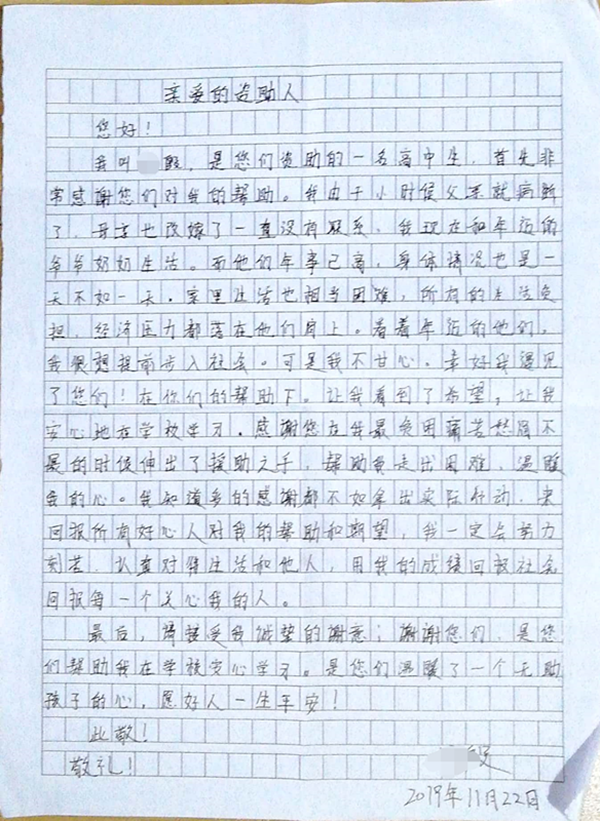 亲爱的资助人
您好！
我叫，是您们资助的一名高中生，首先非
常感谢您们对我的帮助。我由于小时候父亲就病逝
了，母亲也改嫁了一直没有联系，我现在和年迈的
爷爷奶奶生活。而他们年事已高，身体情况也是一
天不如一天。家里生活也相当困难，所有的生活负
担，经济压力都落在他们肩上。看着年迈的他们，
我很想提前步入社会。可是我不甘心。幸好我遇见
了您们！在你们的帮助下。让我看到了希望，让我
安心地在学校学习。感谢您在我最贫困痛苦愁眉不
展的时候伸出了援助之手，帮助我走出困难，温暖
我的心。我知道多的感谢都不如拿出实际行动，来
回报所有好心人对我的帮助和期望，我一定会努力
刻苦，认真对待生活和他人，用我的成绩回报社会
回报每一个关心我的人。
最后，请接受我诚挚的谢意；谢谢您们，是您
们帮助我在学校安心学习。是您们温暖了一个无助
孩子的心，愿好人一生平安！
此敬！
敬礼！
2019年11月22日